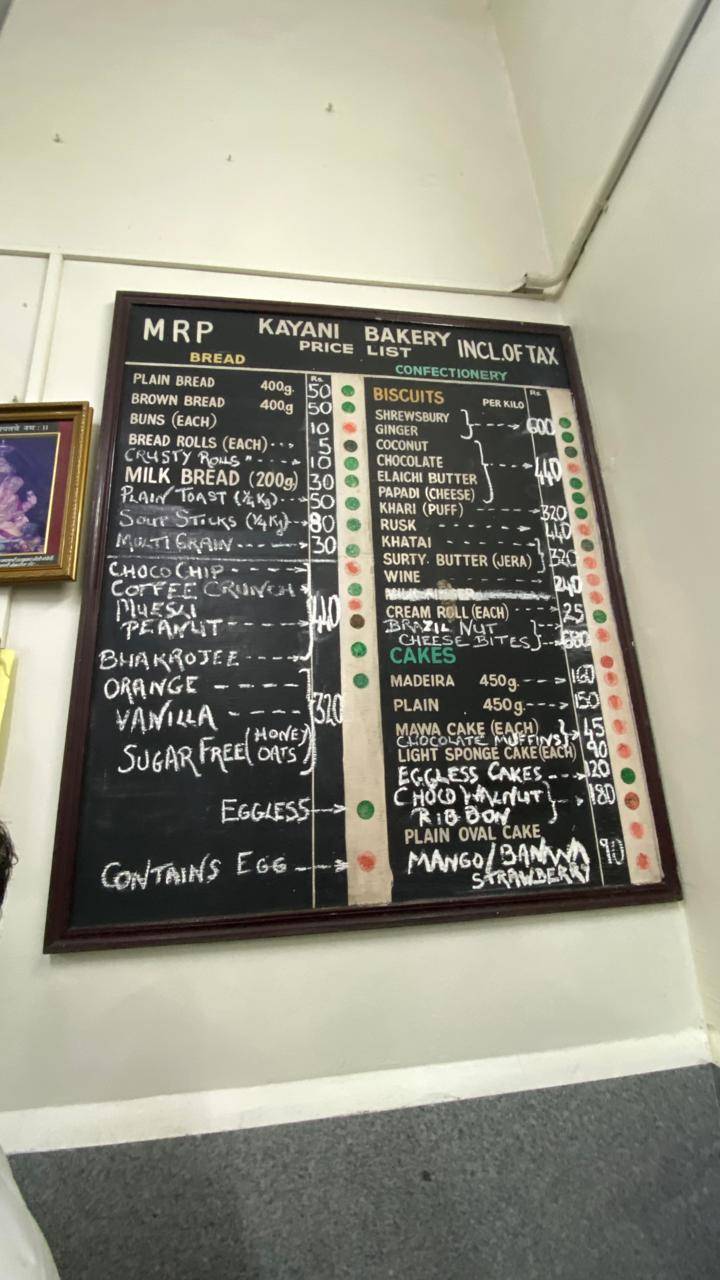 MRP KAYANI BAKERY INCL. OF TAX
PRICE LIST
BREAD
Rs.
PLAIN BREAD 400g. 50
BROWN BREAD 400g 50
BUNS (EACH) 10
BREAD ROLLS (EACH) 5
CRUSTY ROLLS " 10
MILK BREAD (200g) 30
PLAIN TOAST (¼ Kg) 50
SOUP STICKS (¼ Kg) 80
MULTI GRAIN 30
CHOCO CHIP
COFFEE CRUNCH
MUESLI
PEANUT
BHAKROJEE
ORANGE
VANILLA 320
SUGAR FREE (HONEY
OATS)
EGGLESS
CONTAINS EGG
CONFECTIONERY
BISCUITS PER KILO Rs.
SHREWSBURY
GINGER 600
COCONUT
CHOCOLATE 440
ELAICHI BUTTER
PAPADI (CHEESE)
KHARI (PUFF) 320
RUSK
KHATAI
SURTY. BUTTER (JERA) 320
WINE 240
CREAM ROLL (EACH) 25
BRAZIL NUT
CHEESE BITES
CAKES
MADEIRA 450g. 160
PLAIN 450g. 150
MAWA CAKE (EACH) 45
CHOCOLATE MUFFINS
LIGHT SPONGE CAKE (EACH)
EGGLESS CAKES 120
CHOCO WALNUT 180
RIBBON
PLAIN OVAL CAKE
MANGO/BANANA 90
STRAWBERRY